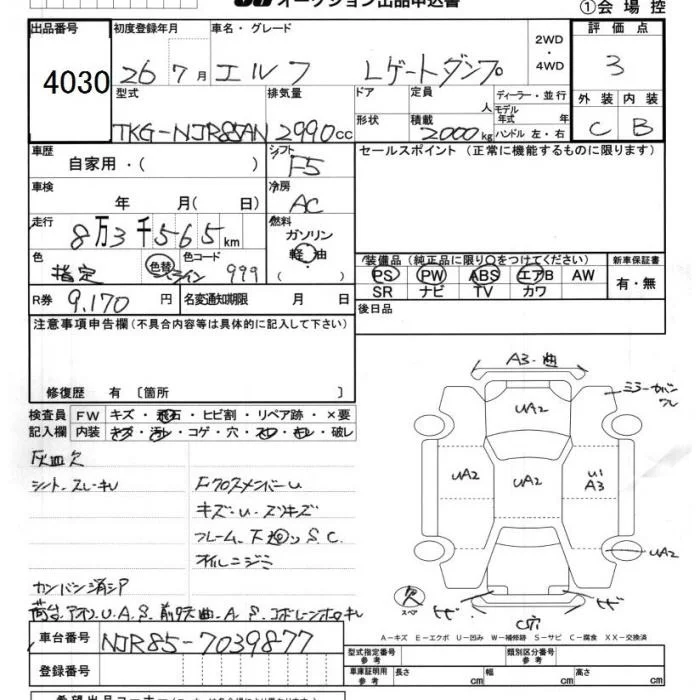 オークション出品申込書
①会場控
出品番号 初度登録年月 車名・グレード 評価点
4030 26 7月 エルフ Lゲートダンプ 2WD・4WD 3
型式 排気量 ドア 定員 人 ディーラー・並行 外装 内装
形状 積載 モデル年式 年
TKG-NJR85AN 2990cc 2000kg ハンドル 左・右 C B
車歴 シフト セールスポイント (正常に機能するものに限ります)
自家用・( ) F5
車検 冷房
年 月( 日) AC
走行 燃料
8万3千565km ガソリン
色 色替 色コード 軽・油
指定 999 ( )
装備品(純正品に限り○をつけてください) 新車保証書
PS PW ABS エアB AW 有・無
SR ナビ TV カワ
R券 9,170円 名変通知期限 月 日 後日品
注意事項申告欄(不具合内容等は具体的に記入して下さい)
修復歴 有 〔箇所 〕
検査員 FW キズ・飛石・ヒビ割・リペア跡・×要
記入欄 内装 キズ・汚レ・コゲ・穴・スレ・キレ・破レ
灰皿欠
シート、スレ・キレ Fクロスメンバーu
キズ・u・ズリキズ
フレーム、下廻り S.C.
オイルニジミ
カンバン消シア
荷台、アオリ、U.A.S.
A3・曲
ミラーカバーワレ
UA2
UA2 UA2 u1
A3
UA2
欠
スペア
C穴
A-キズ E-エクボ U-凹み W-補修跡 S-サビ C-腐食 XX-交換済
車台番号 NJR85-7039877
登録番号
型式指定番号 参考 類別区分番号 参考
車庫証明用 参考 長さ cm 幅 cm 高さ cm